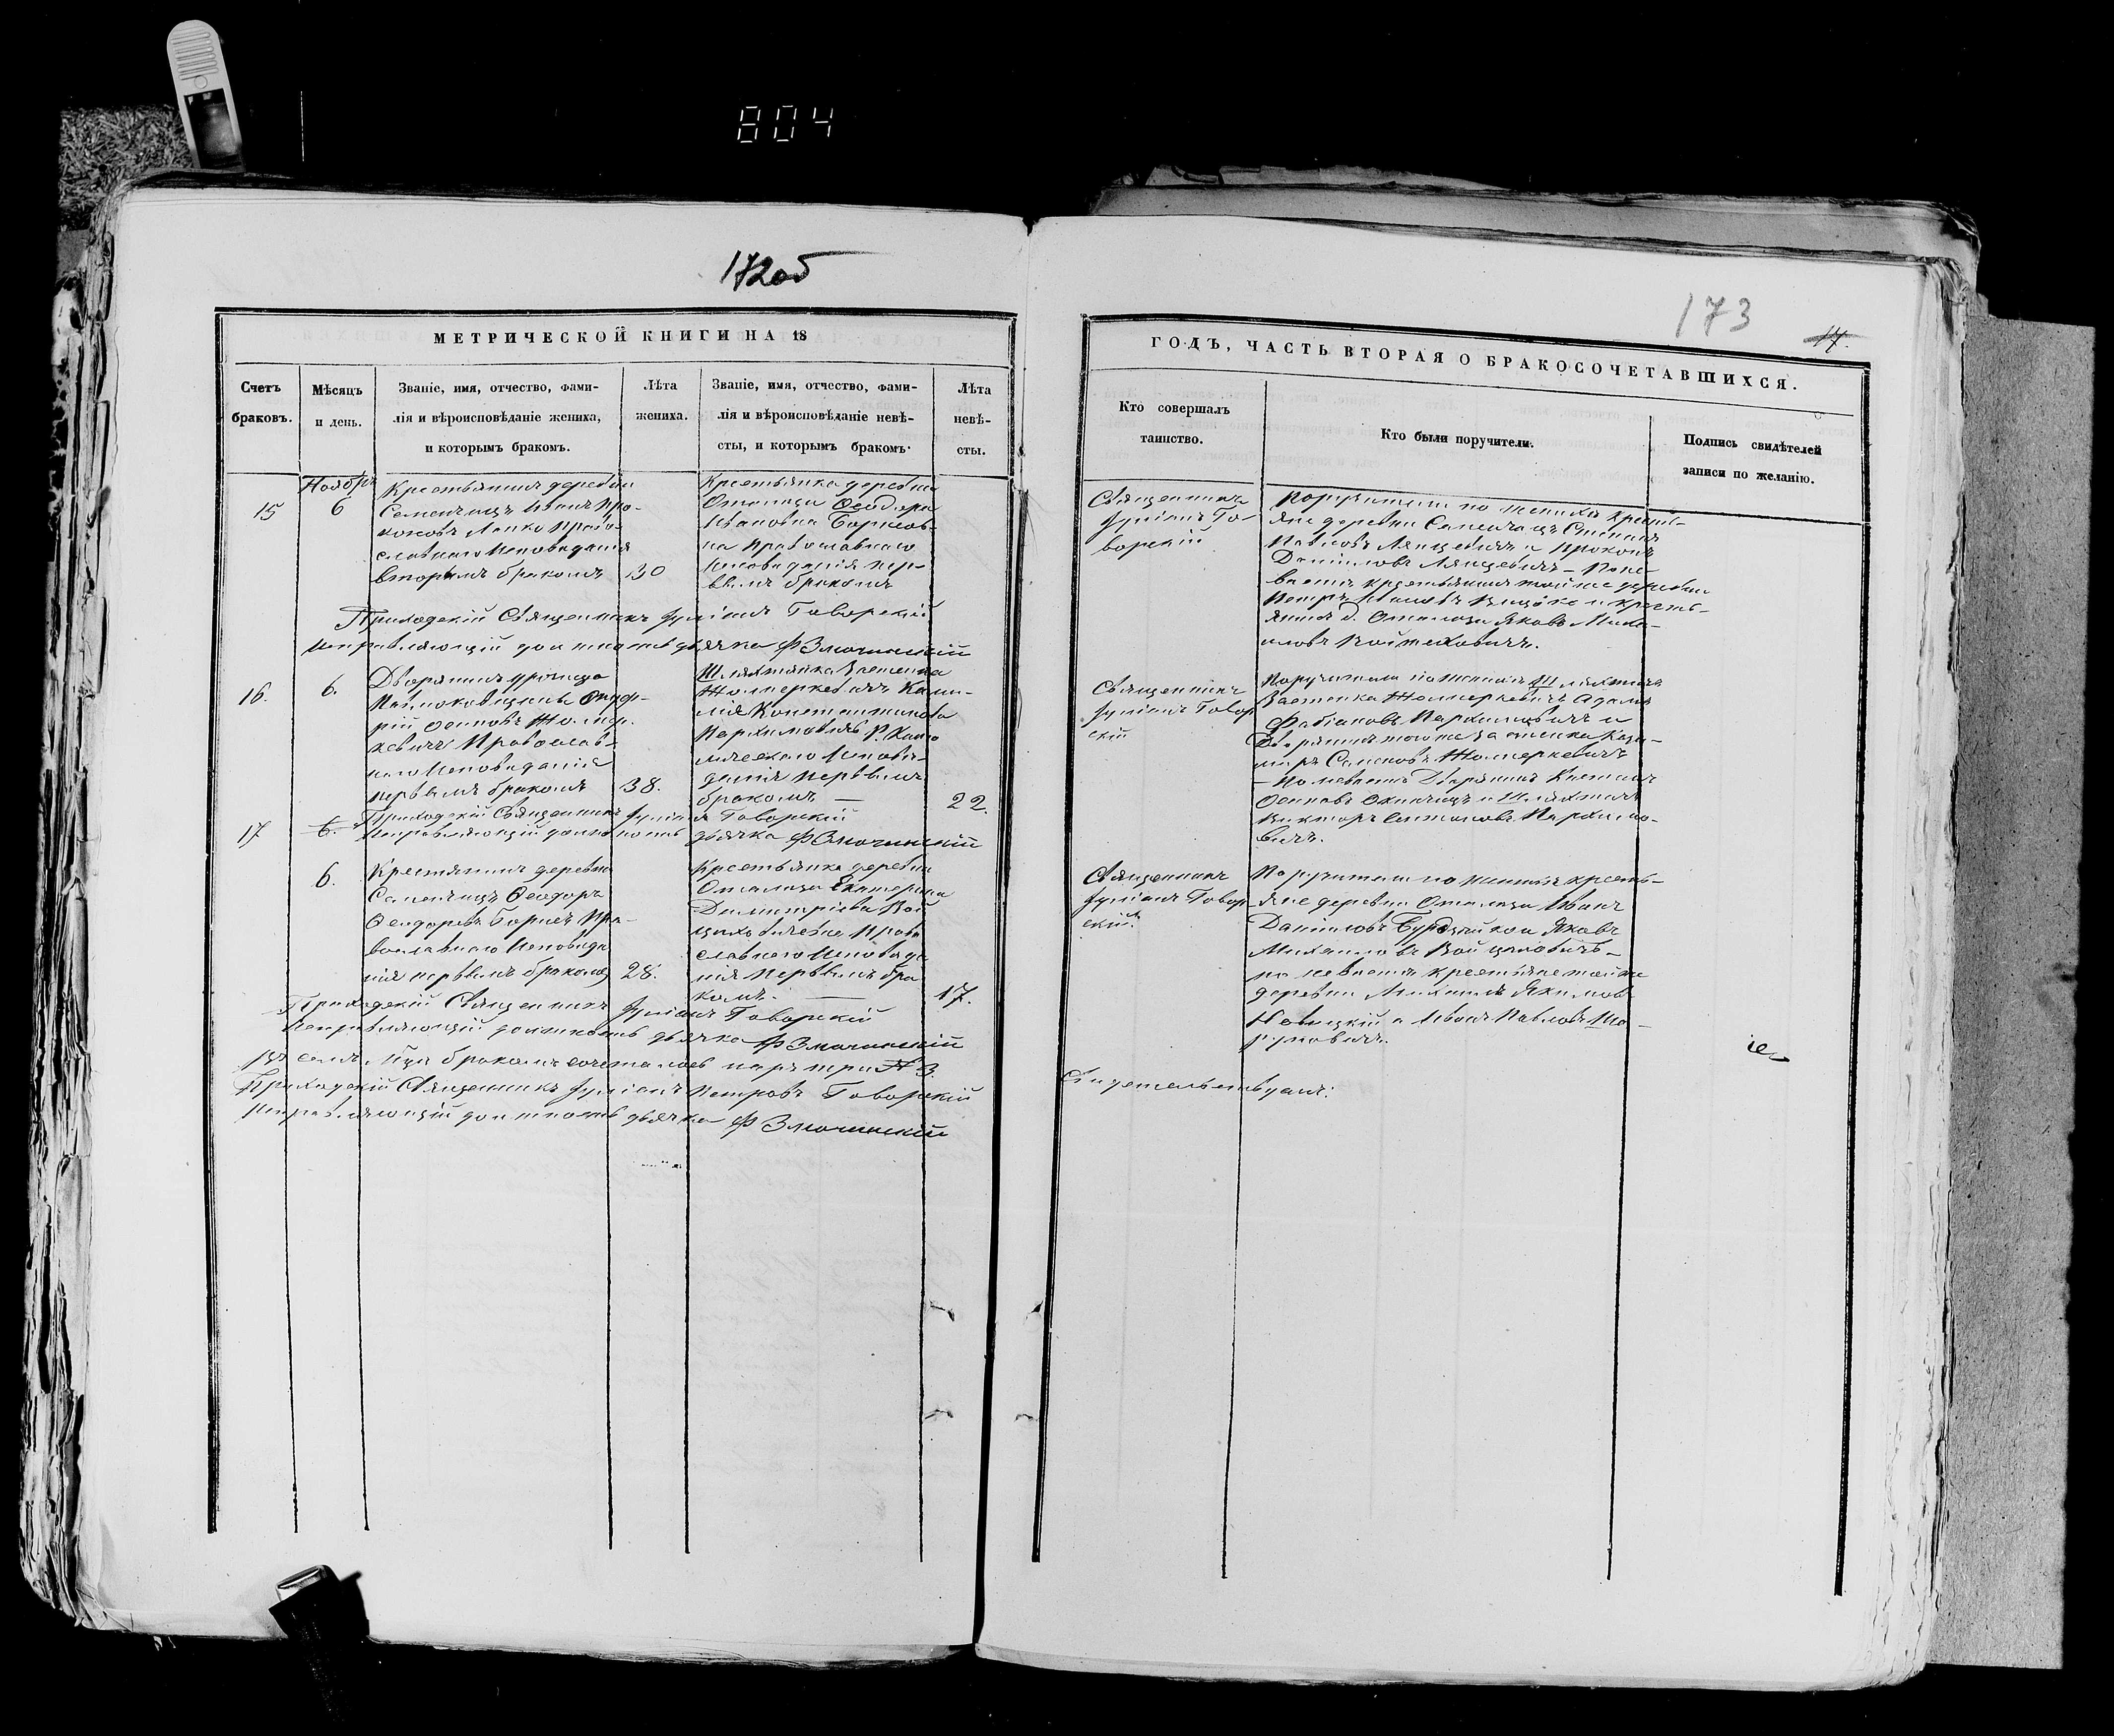 804
172об
МЕТРИЧЕСКОЙ КНИГИ НА 18
Счетъ браковъ.
Мѣсяцъ и день.
Званіе, имя, отчество, фами-
лія и вѣроисповѣданіе жениха,
и которымъ бракомъ.
Лѣта жениха.
Званіе, имя, отчество, фами-
лія и вѣроисповѣданіе невѣ-
сты, и которымъ бракомъ.
Лѣта невѣ-
сты.
15
Ноябрь
6
Крестьянинъ деревни
Семенчицъ Иванъ Про-
коповъ Лапко Право-
славнаго Исповеданія
вторымъ бракомъ
30
Крестьянка деревни
Омелища Ѳеодора
Ивановна Борисов-
на Православнаго
Исповеданія пер-
вымъ бракомъ
Приходскій Священникъ Іуліанъ Говорскій
Исправляющій должность дьячка Ф Змачинскій
16.
6.
Дворянинъ урочища
Онуф-
рій Осиповъ Жолнер-
кевичъ Православ-
наго Исповеданія
первымъ бракомъ
38.
Шляхтянка Застенка
Жолнеркевичъ Ками-
лія Константинова
Пархимовичъ Р. Като
лическаго Испове-
данія первымъ
бракомъ —
22.
Приходскій Священникъ Іуліанъ Говорскій
Исправляющій должность дьячка Ф Змачинскій
17
6.
6.
Крестянинъ деревни
Семенчицъ Ѳеодоръ
Ѳеодоровъ Борисъ Пра-
вославнаго Исповеда
нія первымъ бракомъ
28.
Крестьянка деревни
Омелища Екатерина
Димитріева Вой
циховичевна Право
славнаго Исповеда
нія Первымъ бра
комъ. —
17.
Приходскій Священникъ Іуліанъ Говорскій
Исправляющій должность дьячка Ф Змачинскій
бракомъ сочеталось паръ три № 3.
Приходскій Священникъ Іуліанъ Петровъ Говорскій
Исправляющій должность дьячка Ф Змачинскій
173
17.
ГОДЪ, ЧАСТЬ ВТОРАЯ О БРАКОСОЧЕТАВШИХСЯ.
Кто совершалъ
таинство.
Кто были поручители.
Подпись свидѣтелей
записи по желанію.
Священникъ
Іуліанъ Го-
ворскій
Поручители по женихѣ кресть-
яне деревни Семенчицъ Степанъ
Павловъ Ляцкевичъ и Прокопъ
Даниловъ Ляцкевичъ — По не-
вестѣ крестьянинъ тойже деревни
Петръ Ивановъ и кресть-
янинъ д. Омелища Яковъ Миха-
иловъ Войтеховичъ.
Священникъ
Іуліанъ Говор
скій
Поручители по женихѣ Шляхтичъ
Застенка Жолнеркевичъ Адамъ
Фабіановъ Пархимовичъ и
Дворянинъ тогоже Застенка Кази-
миръ Семеновъ Жолнеркевичъ
— По невестѣ Дворянинъ
Осиповъ и Шляхтичъ
Викторъ Антоновъ Пархимо-
вичъ.
Священникъ
Іуліанъ Говор
скій.
Поручители по женихѣ кресть-
яне деревни Омелища Иванъ
Даниловъ и Яковъ
Михаиловъ Войцеховичъ —
по невестѣ крестьяне тойже
деревни Михаилъ Якимовъ
Новицкій и Иванъ Павловъ

Свидетельствуемъ: